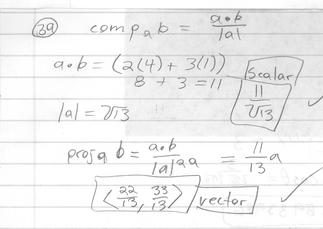 39 comp_a b = a•b / |a|
a•b = (2(4) + 3(1))
8 + 3 = 11
Scalar
11 / √13
|a| = √13
proj_a b = a•b / |a|² a = 11/13 a
⟨22/13, 33/13⟩ vector